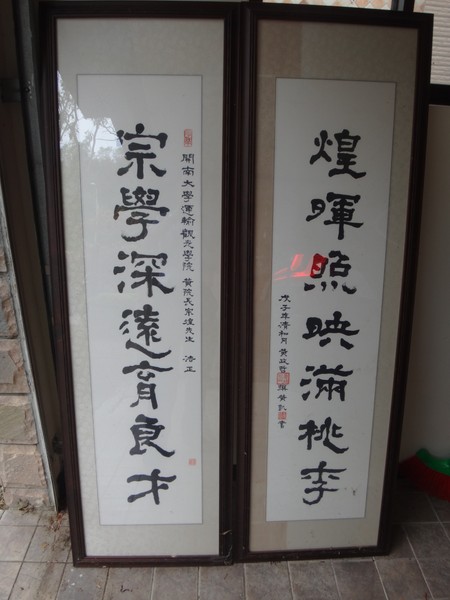 開南大學運輸觀光學院 黃院長宗煌先生 清正
宗學深遠育良才
煌暉照映滿桃李
戊子年清和月黃政哲 撰黃 書